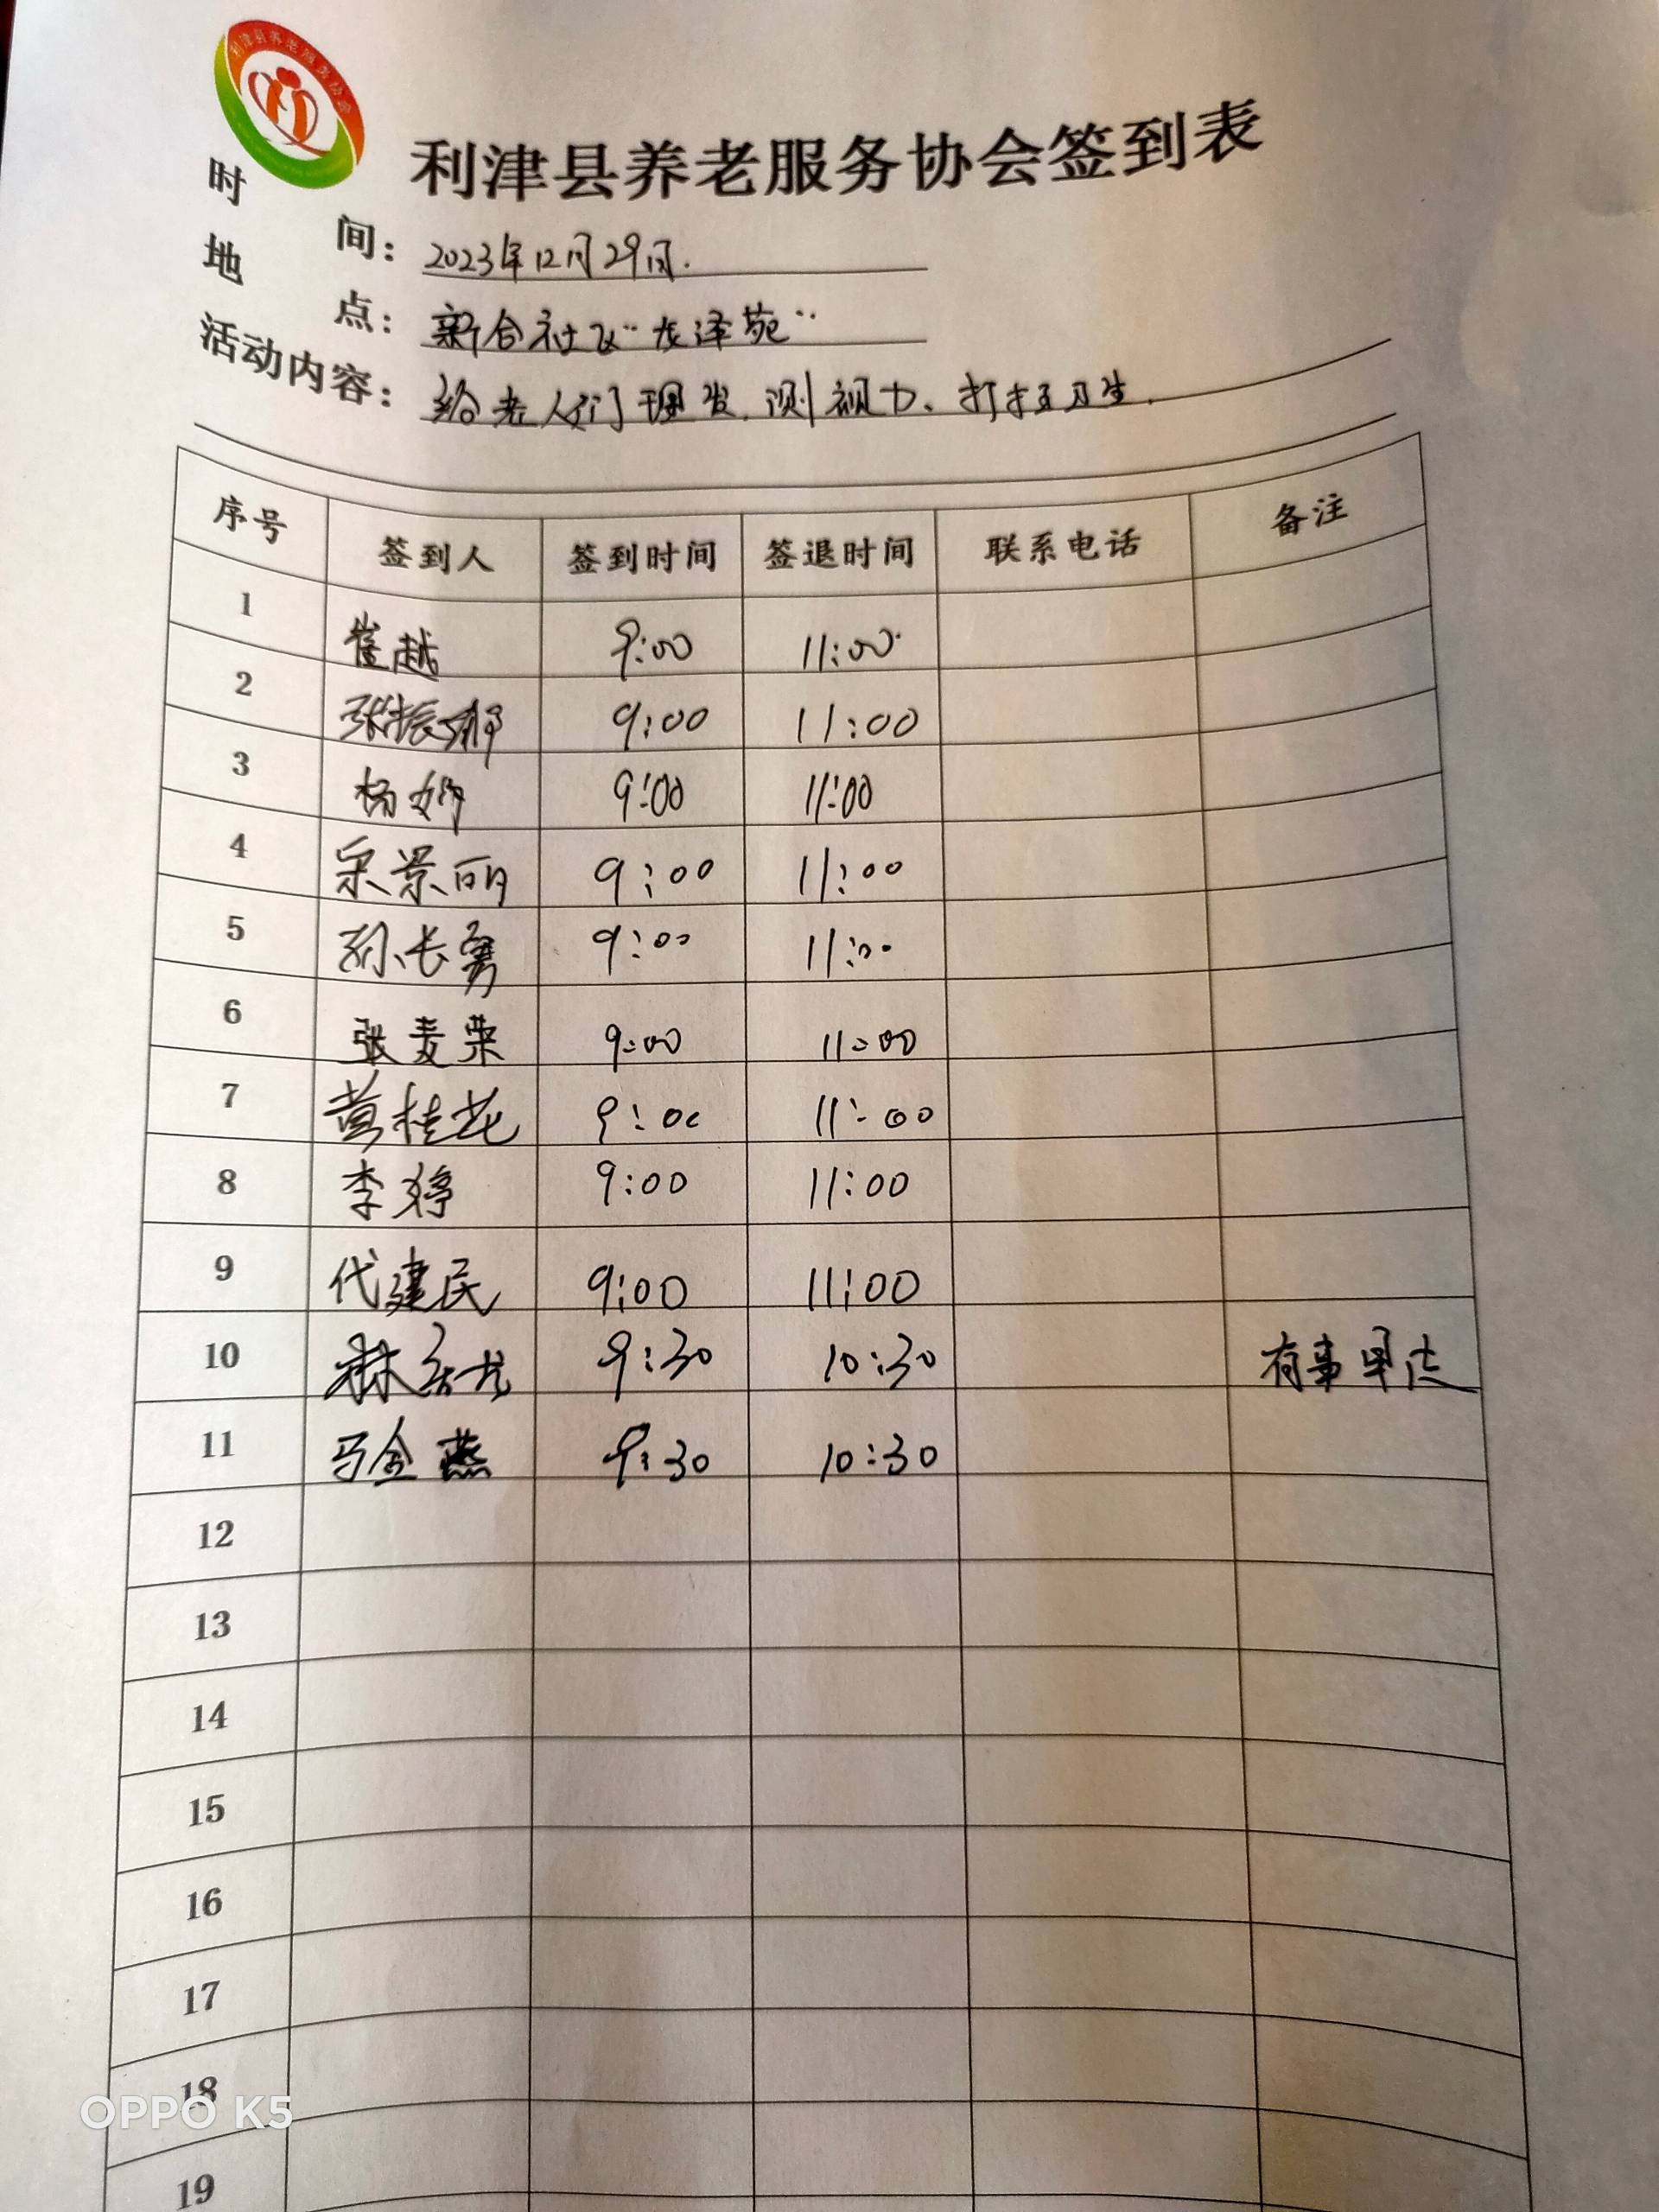 利津县养老服务协会
利津县养老服务协会签到表
时间：2023年12月29日.
地点：新合社区"龙泽苑"
活动内容：给老人们理发、测视力、打扫卫生.
序号 签到人 签到时间 签退时间 联系电话 备注
1 崔越 9:00 11:00
2 张振娜 9:00 11:00
3 杨娜 9:00 11:00
4 宋景丽 9:00 11:00
5 孙长勇 9:00 11:00
6 张麦荣 9:00 11:00
7 黄桂花 9:00 11:00
8 李婷 9:00 11:00
9 代建民 9:00 11:00
10 9:30 10:30 有事早走
11 马金燕 9:30 10:30
12
13
14
15
16
17
18
19
OPPO K5